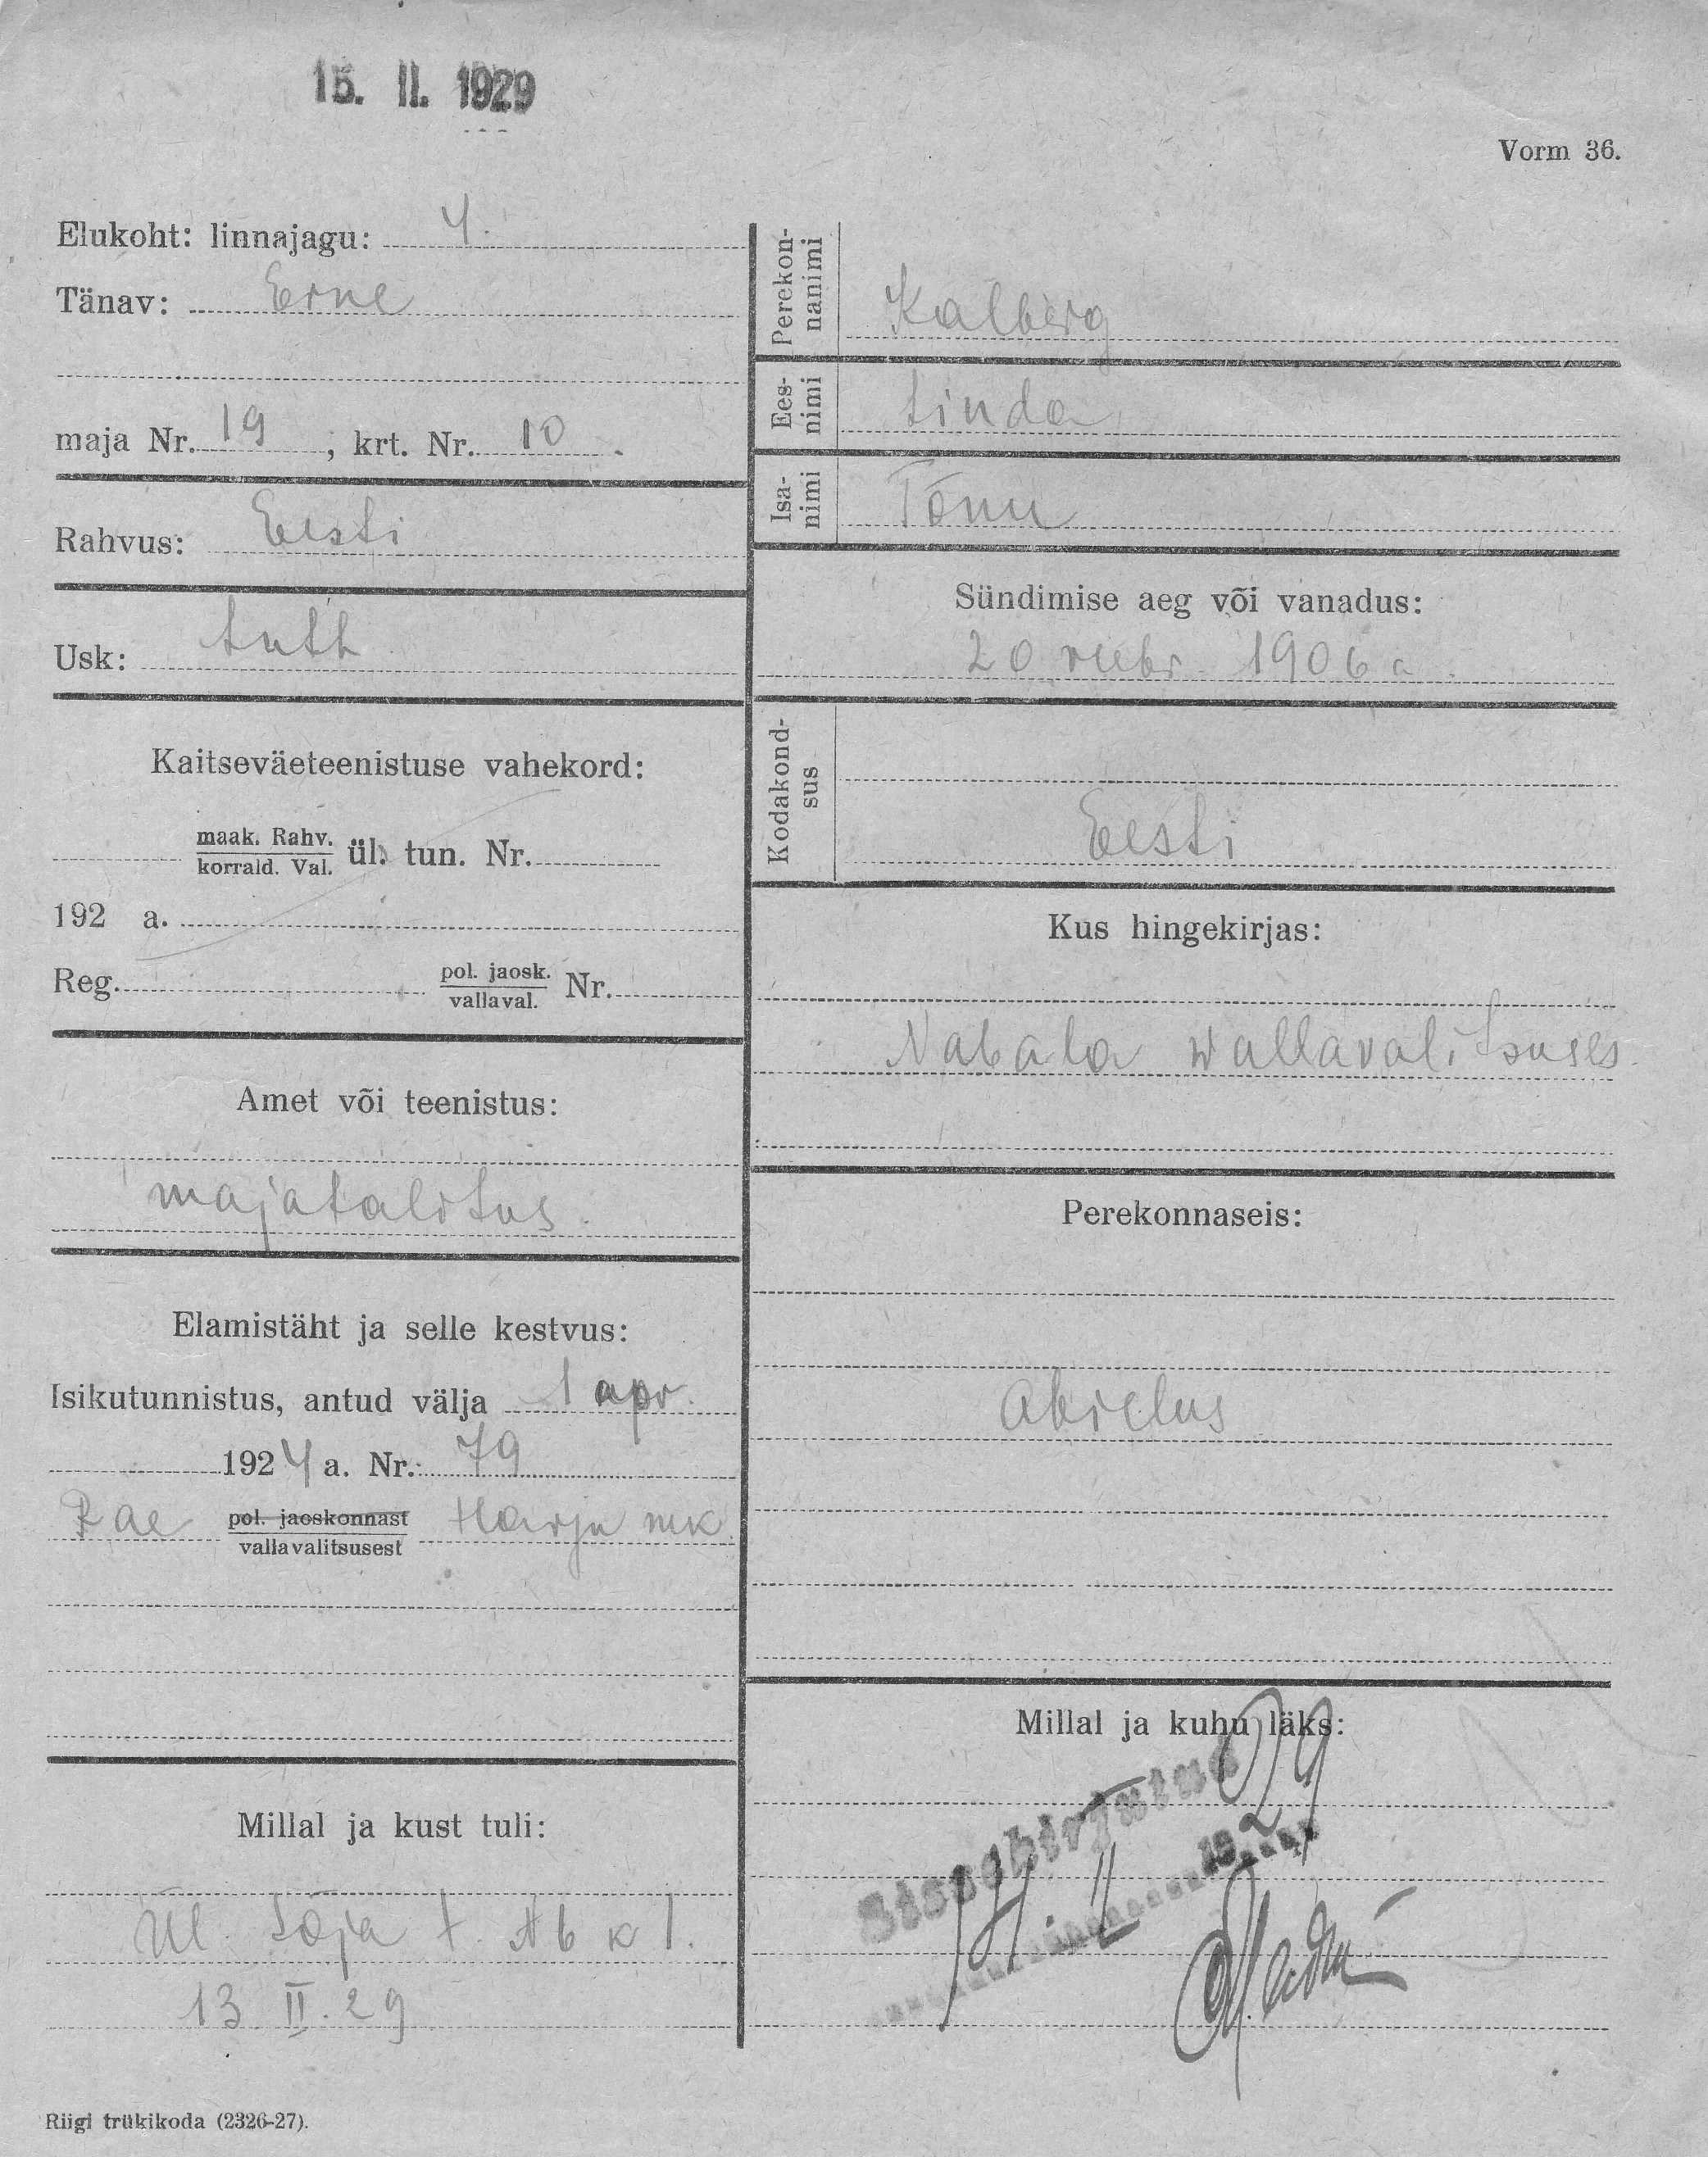 15. II. 1929
Vorm 36.
Elukoht: linnajagu: 4.
Tänav: Erne
maja Nr. 19, krt. Nr. 10.
Rahvus: Eesti
Usk: Luth
Kaitseväeteenistuse vahekord:
maak. Rahv.
korrald. Val.
ül. tun. Nr.
192 a.
Reg.
pol. jaosk.
vallaval.
Nr.
Amet või teenistus:
majatalitus.
Elamistäht ja selle kestvus:
Isikutunnistus, antud välja 1 apr.
1924 a. Nr. 79
Rae pol. jaoskonnast Harju mk.
vallavalitsusest
Millal ja kust tuli:
Ül. Sõja t.
13 II. 29
Riigi trükikoda (2326-27).
Perekon-
nanimi
Kalberg
Ees-
nimi
Linda
Isa-
nimi
Tõnu
Sündimise aeg või vanadus:
20 1906 a.
Kodakond-
sus
Eesti
Kus hingekirjas:
Nabala wallavalitsuses
Perekonnaseis:
abielus
Millal ja kuhu läks:
Sissekirjutud
14. II 1929